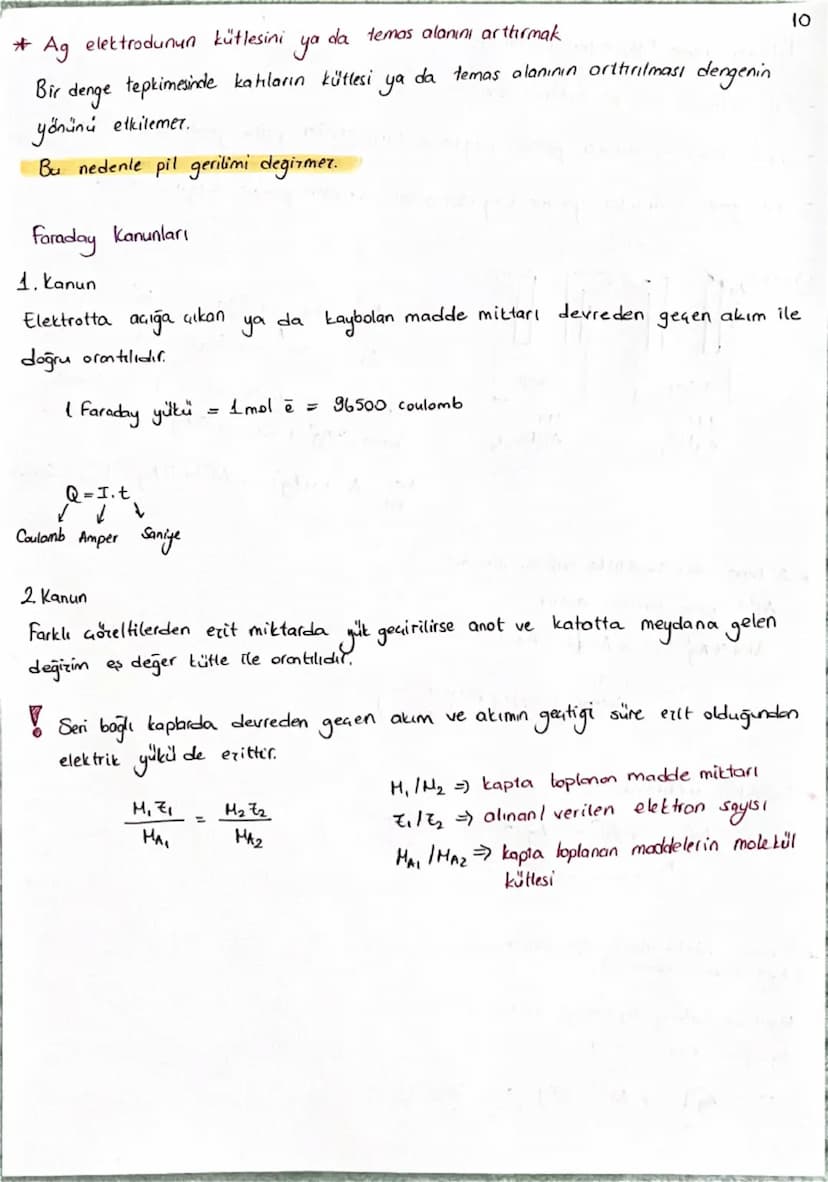 10
* Ag elektrodunun kütlesini ya da temas alanını arttırmak
Bir denge tepkimesinde katıların kütlesi ya da temas alanının arttırılması dengenin
yönünü etkilemez.
Bu nedenle pil gerilimi değişmez.
Faraday Kanunları
1. Kanun
Elektrotta açığa çıkan ya da kaybolan madde miktarı devreden geçen akım ile
doğru orantılıdır.
1 Faraday yükü = 1 mol ē = 96500 coulomb
Q = I.t
Coulomb Amper Saniye
2. Kanun
Farklı çözeltilerden eşit miktarda yük geçirilirse anot ve katotta meydana gelen
değişim eş değer kütle ile orantılıdır.
! Seri bağlı kaplarda devreden geçen akım ve akımın geçtiği süre eşit olduğundan
elektrik yükü de eşittir.
M₁ Z₁ / MA₁ = M₂ Z₂ / MA₂
M₁ / M₂ ⇒ kapta toplanan madde miktarı
Z₁ / Z₂ ⇒ alınan / verilen elektron sayısı
MA₁ / MA₂ ⇒ kapta toplanan maddelerin molekül
kütlesi